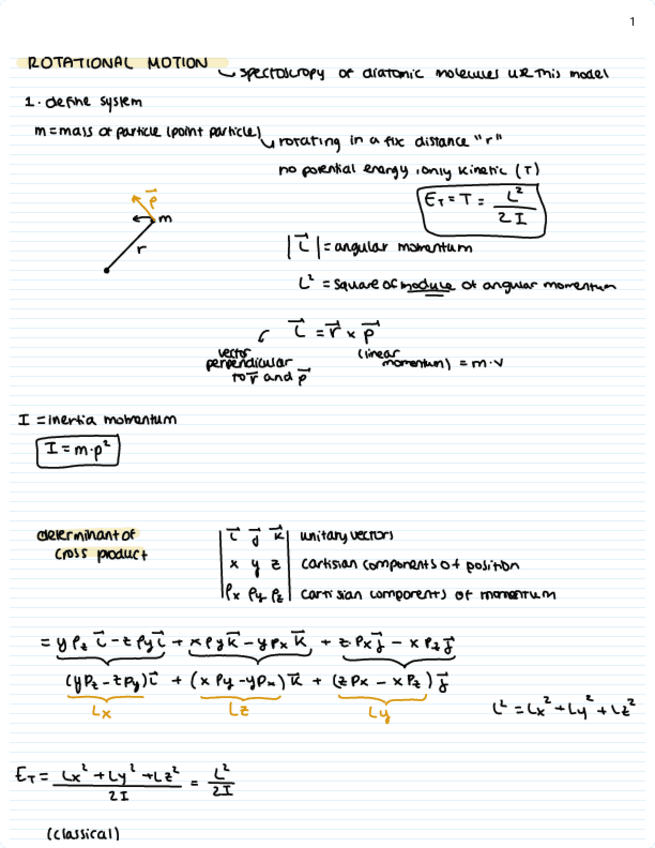 1
ROTATIONAL MOTION ↳ spectoscropy of diatomic molecules use this model
1. define system
m = mass of particle (point particle) ↳ rotating in a fix distance "r"
no potential energy, only kinetic (T)
E_T = T = L² / 2I
p⃗
m
r
|L⃗| = angular momentum
L² = square of module of angular momentum
L⃗ = r⃗ × p⃗
vector perpendicular to r⃗ and p⃗
(linear momentum) = m·v
I = inertia momentum
I = m·p²
determinant of cross product
i⃗ j⃗ k⃗ unitary vectors
x y z cartisian components of position
Px Py Pz cartisian components of momentum
= yPz i⃗ - zPy i⃗ + xPy k⃗ - yPx k⃗ + zPx j⃗ - xPz j⃗
(yPz - zPy) i⃗ + (xPy - yPx) k⃗ + (zPx - xPz) j⃗
Lx Lz Ly
L² = Lx² + Ly² + Lz²
E_T = Lx² + Ly² + Lz² / 2I = L² / 2I
(classical)